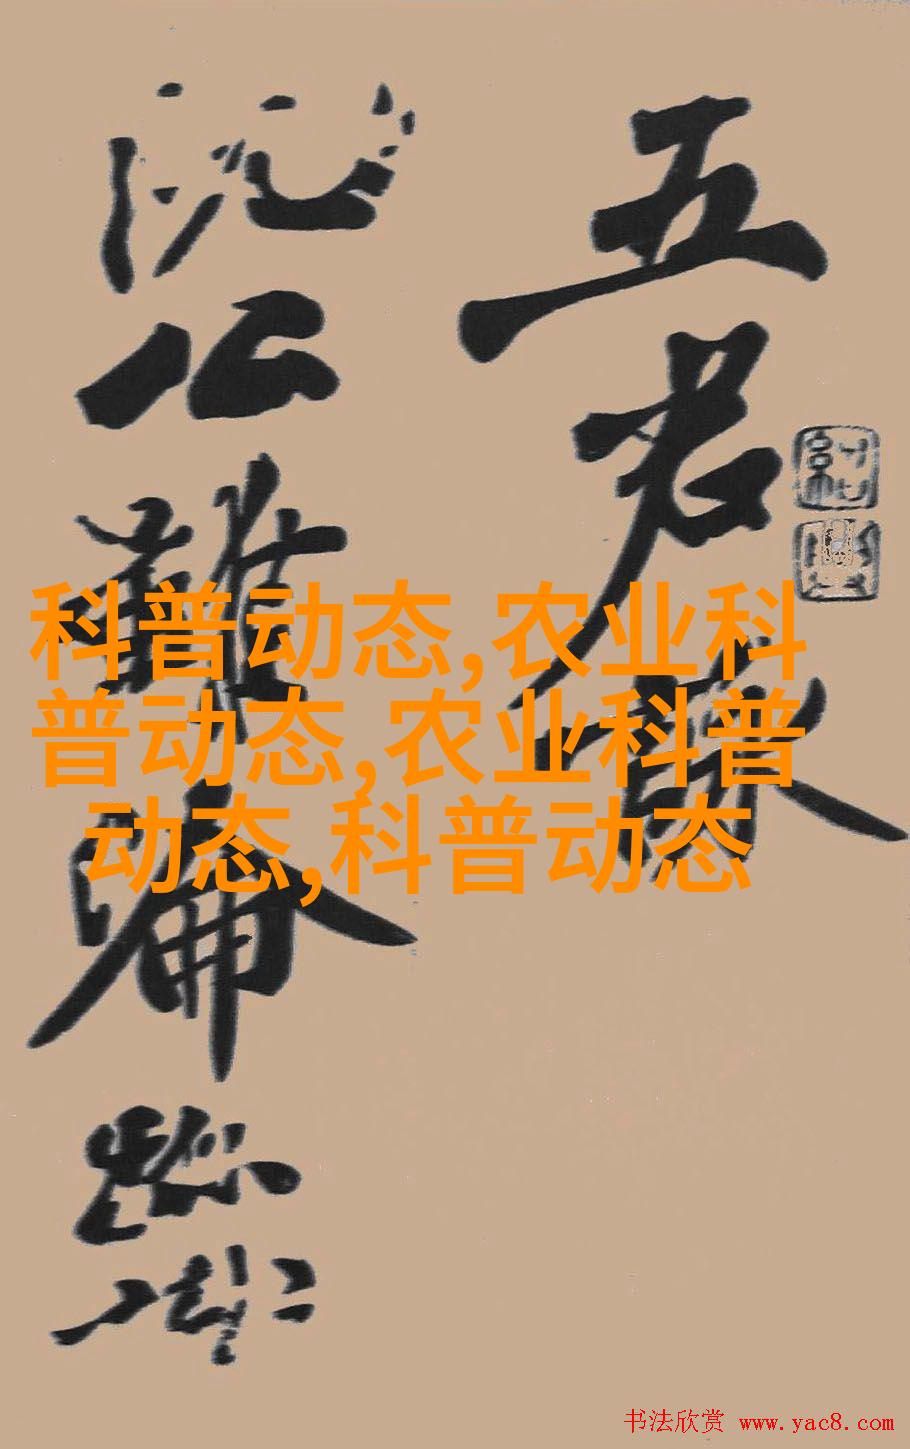 五君
阮公雖淪跡
科普动态,农业科
普动态,农业科普
动态,科普动态
书法欣赏 www.yac8.com